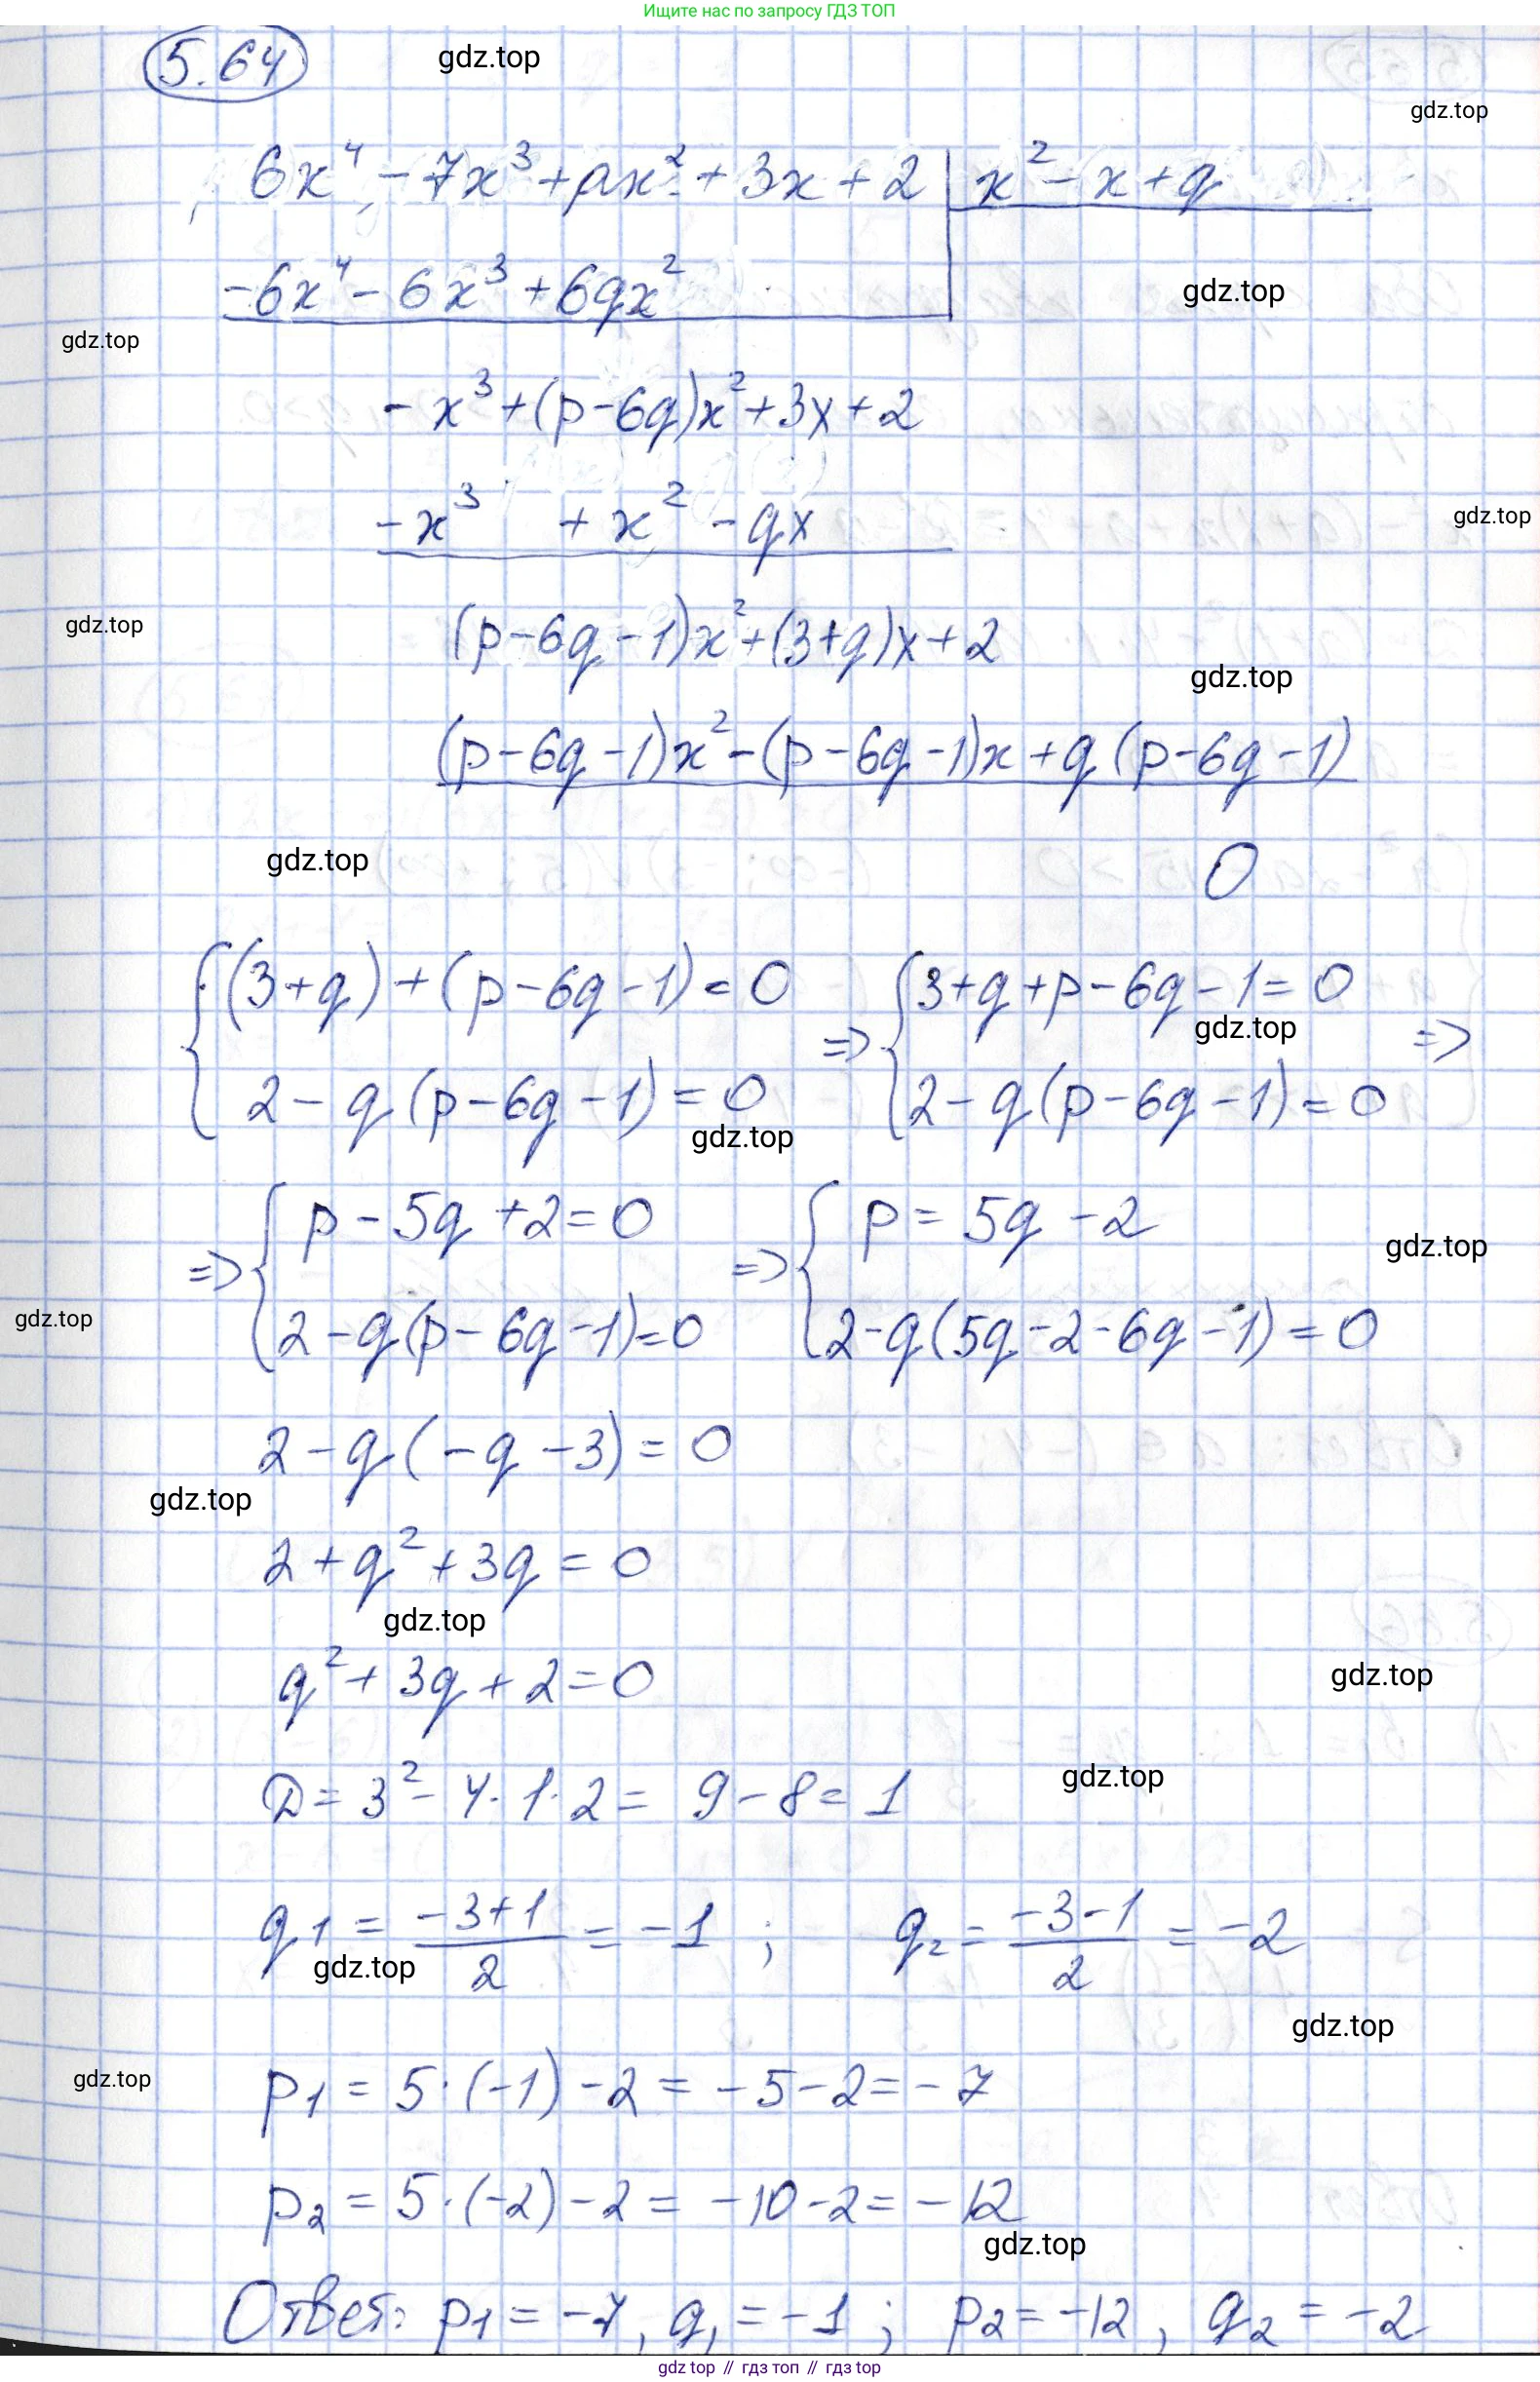 Ищите нас по запросу ГДЗ ТОП
5.64
gdz.top
gdz.top
6x⁴ - 7x³ + px² + 3x + 2 | x² - x + q
-6x⁴ - 6x³ + 6qx²
gdz.top
gdz.top
- x³ + (p - 6q)x² + 3x + 2
- x³ + x² - qx
gdz.top
gdz.top
(p - 6q - 1)x² + (3 + q)x + 2
gdz.top
(p - 6q - 1)x² - (p - 6q - 1)x + q(p - 6q - 1)
gdz.top
0
{ (3 + q) + (p - 6q - 1) = 0 => { 3 + q + p - 6q - 1 = 0 =>
gdz.top
2 - q(p - 6q - 1) = 0 2 - q(p - 6q - 1) = 0
gdz.top
=> { p - 5q + 2 = 0 => { p = 5q - 2
gdz.top
gdz.top
2 - q(p - 6q - 1) = 0 2 - q(5q - 2 - 6q - 1) = 0
2 - q(-q - 3) = 0
gdz.top
2 + q² + 3q = 0
gdz.top
q² + 3q + 2 = 0
gdz.top
D = 3² - 4 · 1 · 2 = 9 - 8 = 1
gdz.top
q1 = (-3+1)/2 = -1 ; q2 = (-3-1)/2 = -2
gdz.top
gdz.top
p1 = 5 · (-1) - 2 = -5 - 2 = -7
gdz.top
p2 = 5 · (-2) - 2 = -10 - 2 = -12
gdz.top
Ответ: p1 = -7, q1 = -1 ; p2 = -12, q2 = -2
gdz top // гдз топ // гдз top